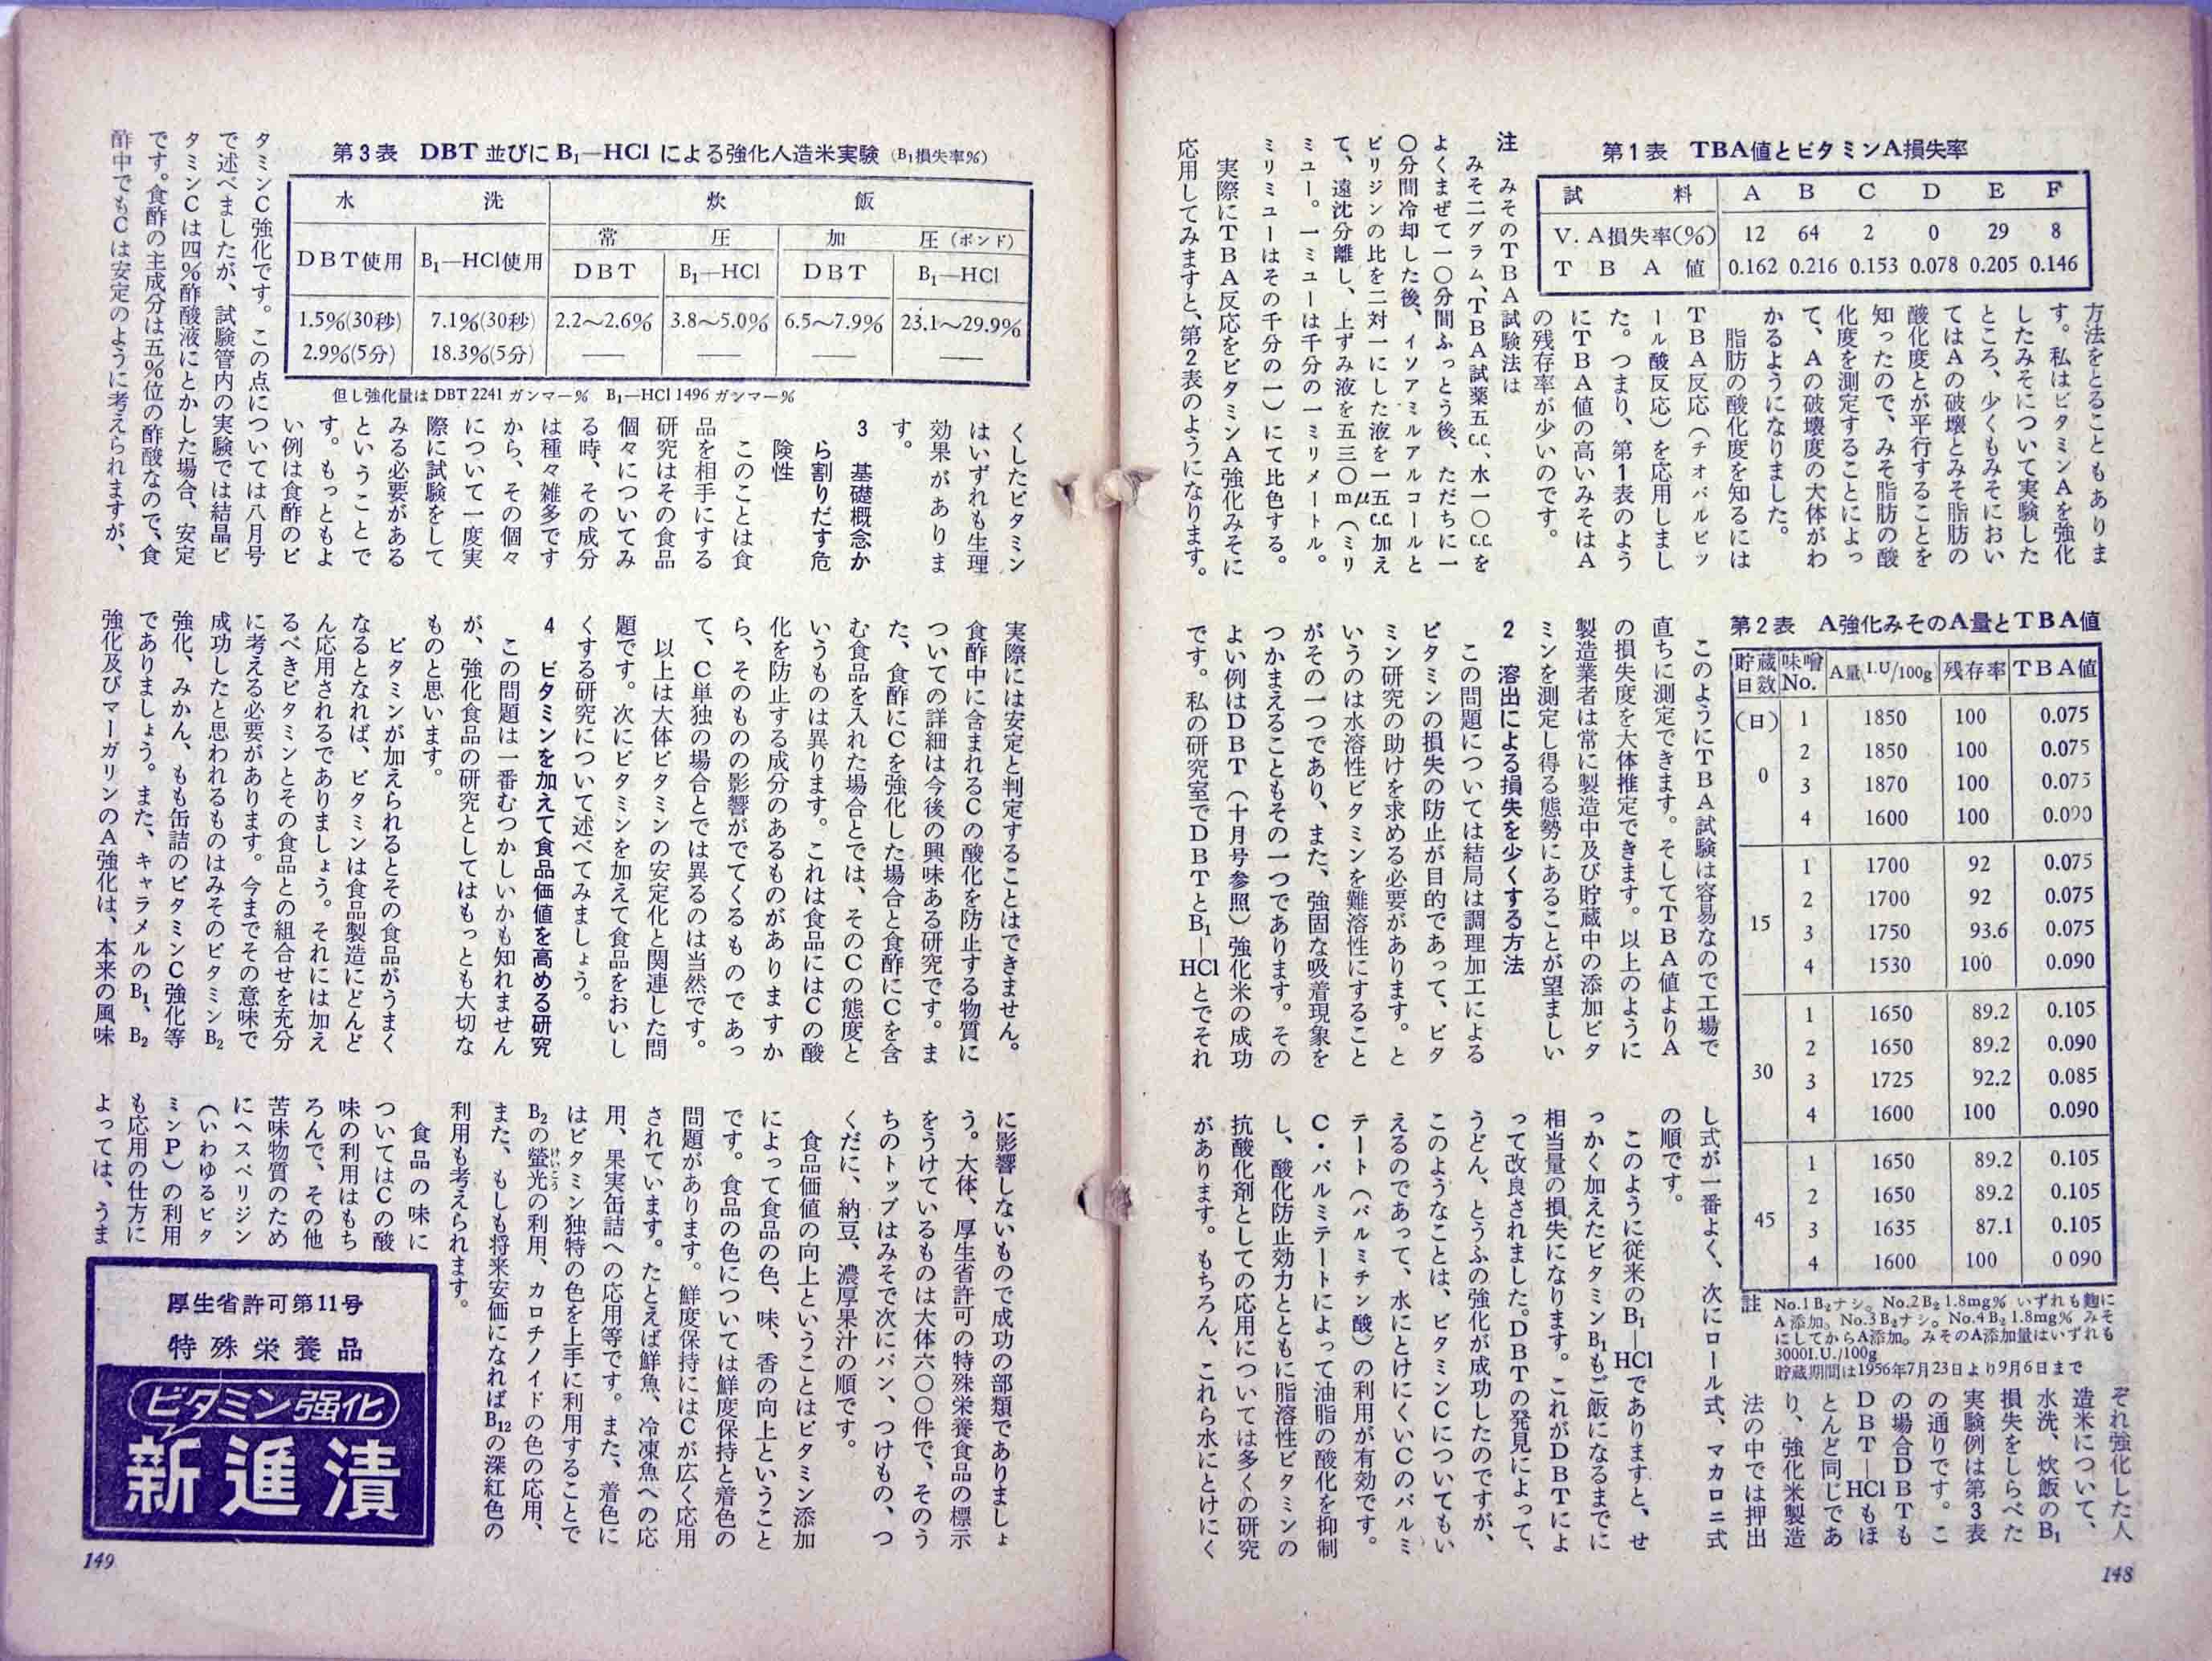 第1表　TBA値とビタミンA損失率
試料 A B C D E F
V.A損失率(%) 12 64 2 0 29 8
TBA値 0.162 0.216 0.153 0.078 0.205 0.146
方法をとることもありま
す。私はビタミンAを強化
したみそについて実験した
ところ、少くもみそにおい
てはAの破壊とみそ脂肪の
酸化度とが平行することを
知ったので、みそ脂肪の酸
化度を測定することによっ
て、Aの破壊度の大体がわ
かるようになりました。
脂肪の酸化度を知るには
TBA反応（チオバルビツ
ール酸反応）を応用しまし
た。つまり、第1表のよう
にTBA値の高いみそはA
の残存率が少いのです。
注　みそのTBA試験法は
みそ二グラム、TBA試薬五c.c.、水一〇c.c.を
よくまぜて一〇分間ふっとう後、ただちに一
〇分間冷却した後、イソアミルアルコールと
ピリジンの比を二対一にした液を一五c.c.加え
て、遠沈分離し、上ずみ液を五三〇mμ（ミリ
ミュー。一ミューは千分の一ミリメートル。
ミリミューはその千分の一）にて比色する。
実際にTBA反応をビタミンA強化みそに
応用してみますと、第2表のようになります。
第2表　A強化みそのA量とTBA値
貯蔵日数 味噌No. A量(I.U/100g) 残存率 TBA値
(日) 1 1850 100 0.075
2 1850 100 0.075
0 3 1870 100 0.075
4 1600 100 0.090
1 1700 92 0.075
2 1700 92 0.075
15 3 1750 93.6 0.075
4 1530 100 0.090
1 1650 89.2 0.105
2 1650 89.2 0.090
30 3 1725 92.2 0.085
4 1600 100 0.090
1 1650 89.2 0.105
2 1650 89.2 0.105
45 3 1635 87.1 0.105
4 1600 100 0 090
註　No.1 B₂ナシ。No.2 B₂ 1.8mg% いずれも麹に
A添加。No.3 B₂ナシ。No.4 B₂ 1.8mg% みそ
にしてからA添加。みそのA添加量はいずれも
3000I.U./100g
貯蔵期間は1956年7月23日より9月6日まで
このようにTBA試験は容易なので工場で
直ちに測定できます。そしてTBA値よりA
の損失度を大体推定できます。以上のように
製造業者は常に製造中及び貯蔵中の添加ビタ
ミンを測定し得る態勢にあることが望ましい
2　溶出による損失を少くする方法
この問題については結局は調理加工による
ビタミンの損失の防止が目的であって、ビタ
ミン研究の助けを求める必要があります。と
いうのは水溶性ビタミンを難溶性にすること
がその一つであり、また、強固な吸着現象を
つかまえることもその一つであります。その
よい例はDBT（十月号参照）強化米の成功
です。私の研究室でDBTとB₁―HClとでそれ
ぞれ強化した人
造米について、
水洗、炊飯のB₁
損失をしらべた
実験例は第3表
の通りです。こ
の場合DBTも
DBT―HClもほ
とんど同じであ
り、強化米製造
法の中では押出
し式が一番よく、次にロール式、マカロニ式
の順です。
このように従来のB₁―HClでありますと、せ
っかく加えたビタミンB₁もご飯になるまでに
相当量の損失になります。これがDBTによ
って改良されました。DBTの発見によって、
うどん、とうふの強化が成功したのですが、
このようなことは、ビタミンCについてもい
えるのであって、水にとけにくいCのパルミ
テート（パルミチン酸）の利用が有効です。
C・パルミテートによって油脂の酸化を抑制
し、酸化防止効力とともに脂溶性ビタミンの
抗酸化剤としての応用については多くの研究
があります。もちろん、これら水にとけにく
148
第3表　DBT 並びに B₁―HCl による強化人造米実験（B₁損失率%）
水洗 炊飯
常圧 加圧（ポンド）
DBT使用 B₁―HCl使用 DBT B₁―HCl DBT B₁―HCl
1.5%(30秒) 7.1%(30秒) 2.2〜2.6% 3.8〜5.0% 6.5〜7.9% 23.1〜29.9%
2.9%(5分) 18.3%(5分) ―― ―― ―― ――
但し強化量は DBT 2241 ガンマー%　B₁―HCl 1496 ガンマー%
くしたビタミン
はいずれも生理
効果がありま
す。
3　基礎概念か
ら割りだす危
険性
このことは食
品を相手にする
研究はその食品
個々についてみ
る時、その成分
は種々雑多です
から、その個々
について一度実
際に試験をして
みる必要がある
ということで
す。もっともよ
い例は食酢のビ
タミンC強化です。この点については八月号
で述べましたが、試験管内の実験では結晶ビ
タミンCは四%酢酸液にとかした場合、安定
です。食酢の主成分は五%位の酢酸なので、食
酢中でもCは安定のように考えられますが、
実際には安定と判定することはできません。
食酢中に含まれるCの酸化を防止する物質に
ついての詳細は今後の興味ある研究です。ま
た、食酢にCを強化した場合と食酢にCを含
む食品を入れた場合とでは、そのCの態度と
いうものは異ります。これは食品にはCの酸
化を防止する成分のあるものがありますか
ら、そのものの影響がでてくるものであっ
て、C単独の場合とでは異るのは当然です。
以上は大体ビタミンの安定化と関連した問
題です。次にビタミンを加えて食品をおいし
くする研究について述べてみましょう。
4　ビタミンを加えて食品価値を高める研究
この問題は一番むつかしいかも知れません
が、強化食品の研究としてはもっとも大切な
ものと思います。
ビタミンが加えられるとその食品がうまく
なるとなれば、ビタミンは食品製造にどんど
ん応用されるでありましょう。それには加え
るべきビタミンとその食品との組合せを充分
に考える必要があります。今までその意味で
成功したと思われるものはみそのビタミンB₂
強化、みかん、もも缶詰のビタミンC強化等
でありましょう。また、キャラメルのB₁、B₂
強化及びマーガリンのA強化は、本来の風味
に影響しないもので成功の部類でありましょ
う。大体、厚生省許可の特殊栄養食品の標示
をうけているものは大体六〇〇件で、そのう
ちのトップはみそで次にパン、つけもの、つ
くだに、納豆、濃厚果汁の順です。
食品価値の向上ということはビタミン添加
によって食品の色、味、香の向上ということ
です。食品の色については鮮度保持と着色の
問題があります。鮮度保持にはCが広く応用
されています。たとえば鮮魚、冷凍魚への応
用、果実缶詰への応用等です。また、着色に
はビタミン独特の色を上手に利用することで
B₂の螢光（けいこう）の利用、カロチノイドの色の応用、
また、もしも将来安価になればB₁₂の深紅色の
利用も考えられます。
食品の味に
ついてはCの酸
味の利用はもち
ろんで、その他
苦味物質のため
にヘスペリジン
（いわゆるビタ
ミンP）の利用
も応用の仕方に
よっては、うま
厚生省許可第11号
特殊栄養品
ビタミン強化
新進漬
149